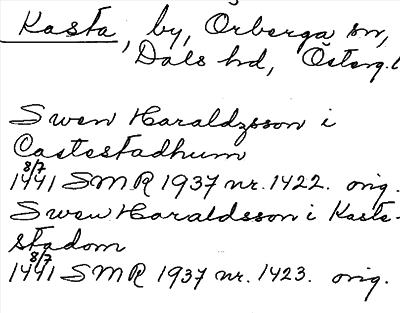 Kasta, by, Örberga sn,
Dals hd, Österg.l
Swen Haraldzsson i
Castestadhum
8/7
1441 SMR 1937 nr. 1422. orig.
Swen Haraldsson i Kaste-
stadom
8/7
1441 SMR 1937 nr. 1423. orig.